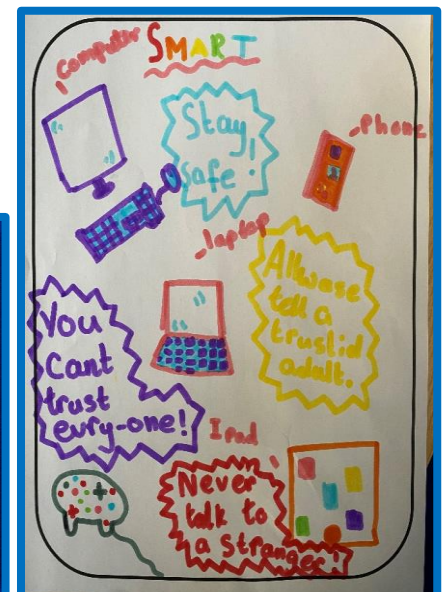 SMART
computer
Stay
safe!
phone
laptop
Allwase
tell a
trustid
adult.
You
Cant
trust
evry-one!
Ipad
Never
talk to
a stranger!